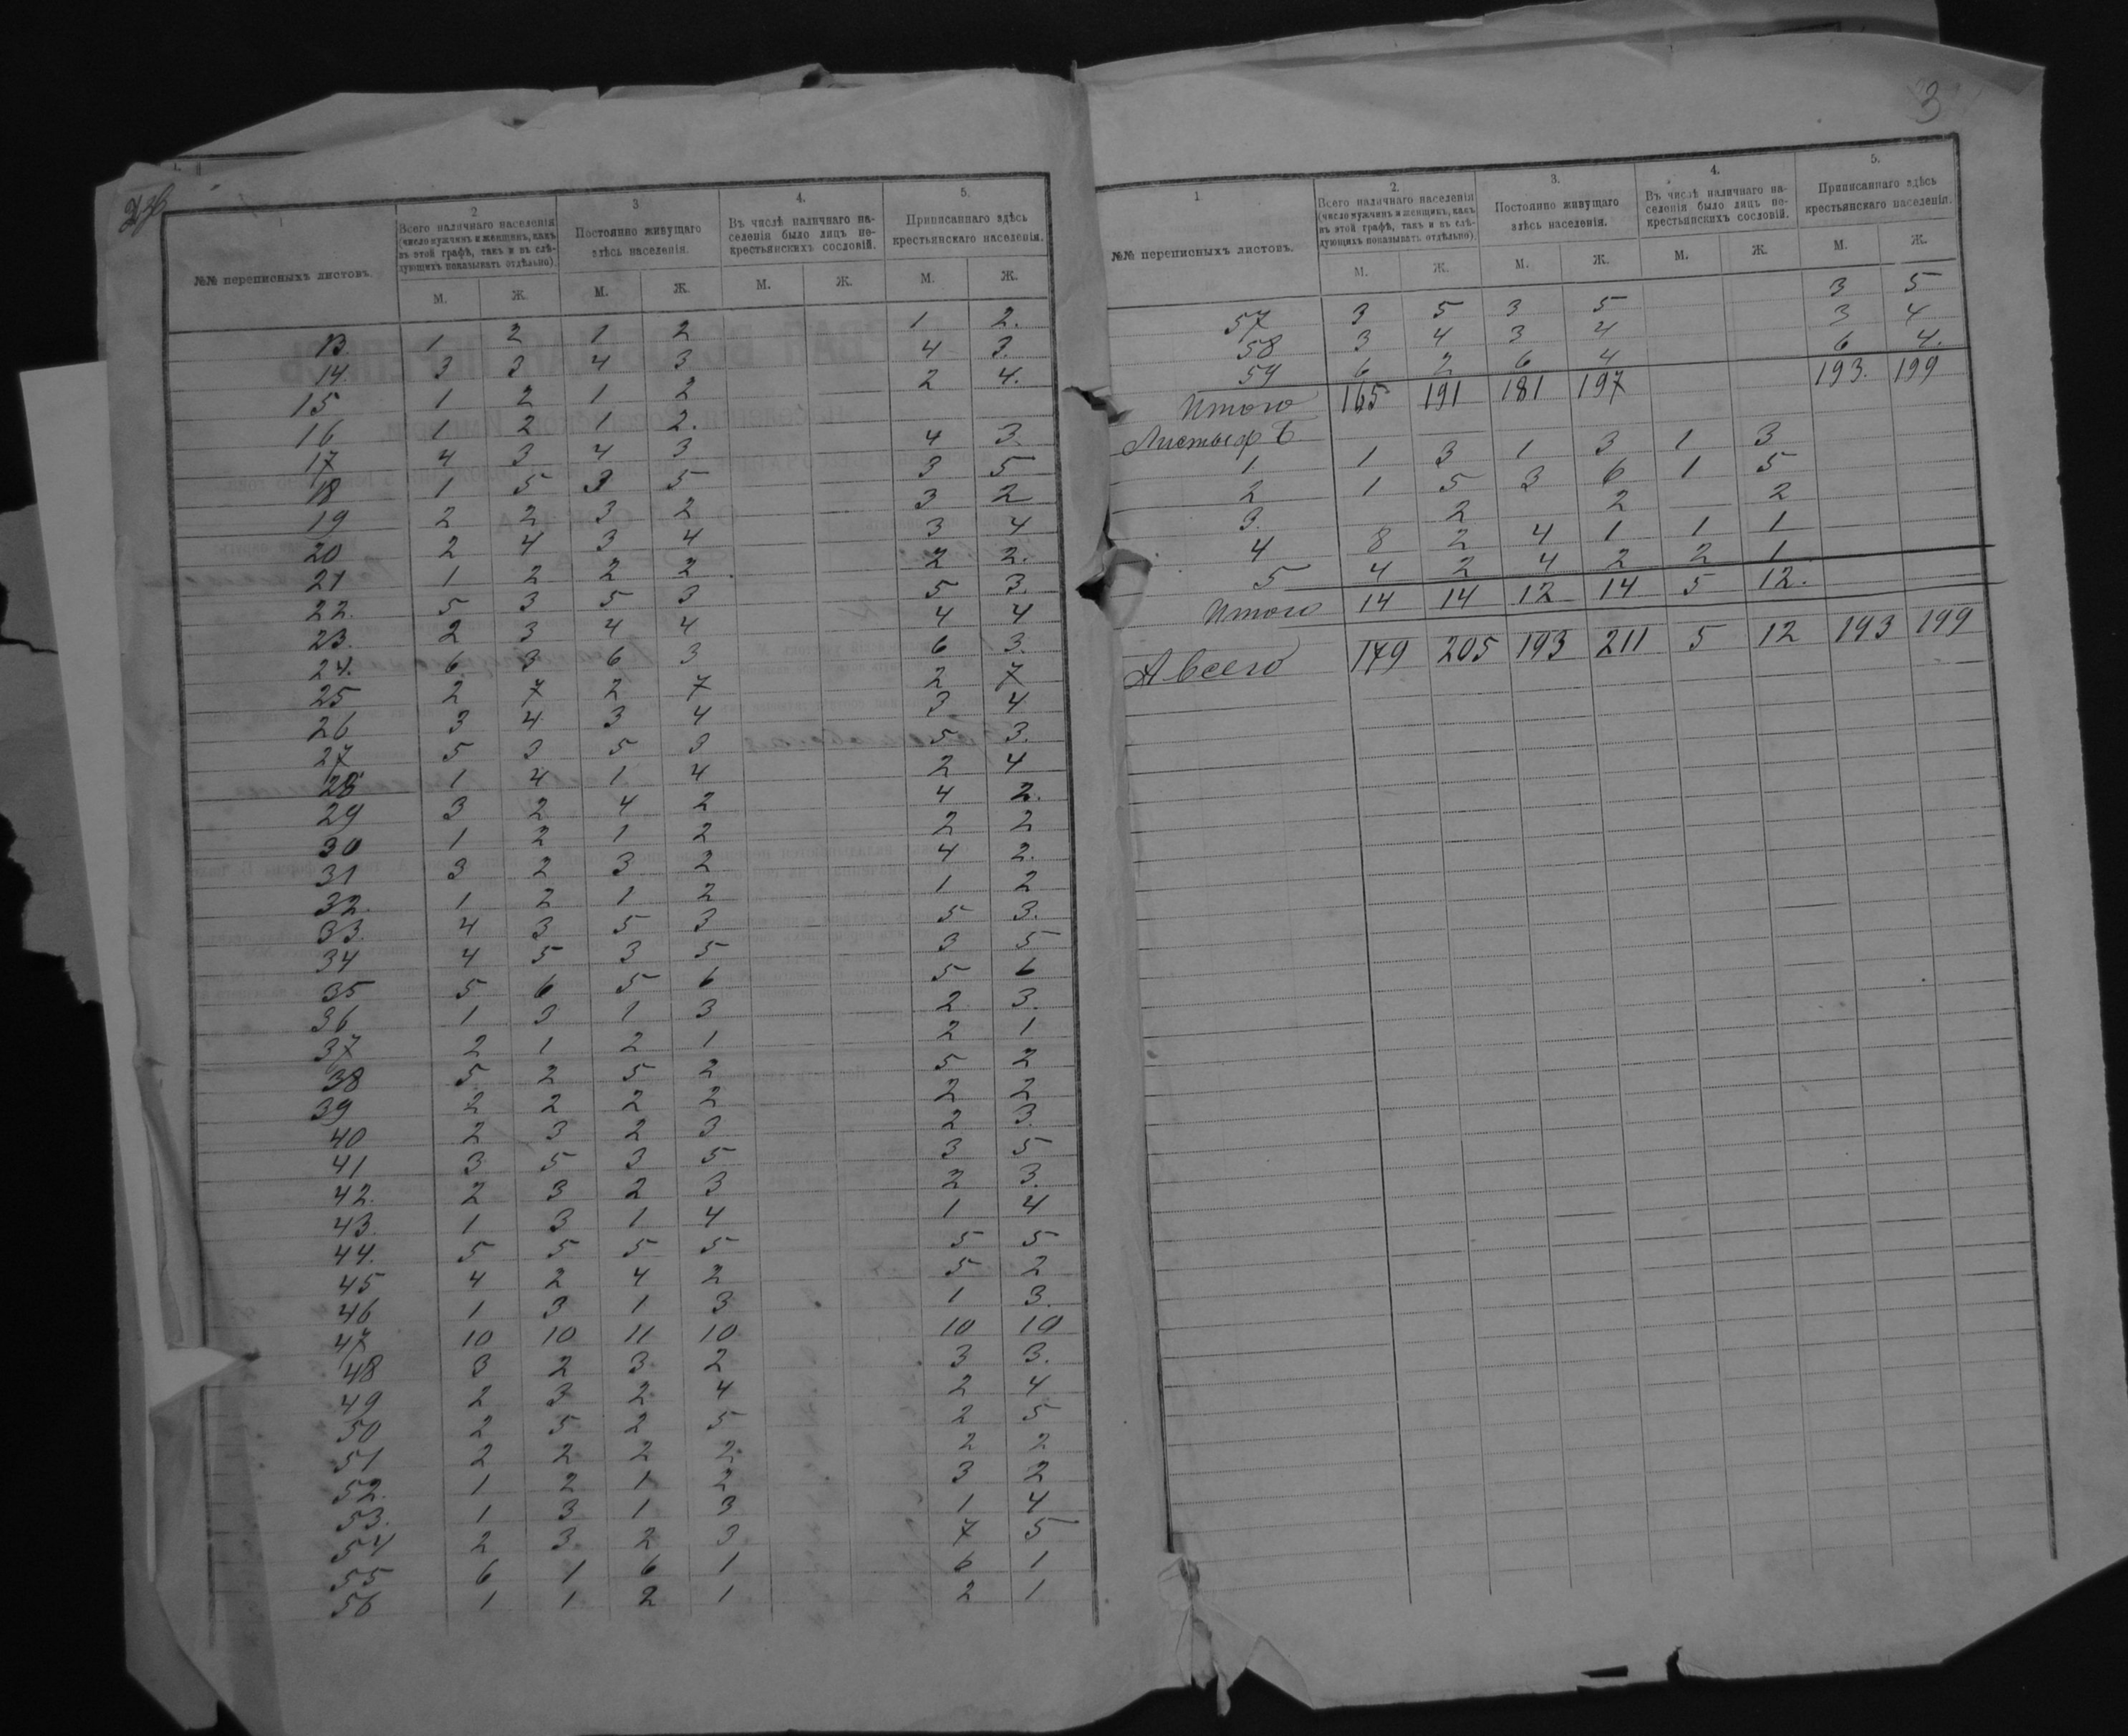 1. 2 3 4. 5.
№№ переписныхъ листовъ. Всего наличнаго населенія (число мужчинъ и женщинъ, какъ въ этой графѣ, такъ и въ слѣдующихъ показывать отдѣльно). Постоянно живущаго здѣсь населенія. Въ числѣ наличнаго населенія было лицъ не-крестьянскихъ сословій. Приписаннаго здѣсь крестьянскаго населенія.
М. Ж. М. Ж. М. Ж. М. Ж.
13. 1 2 1 2 1 2.
14. 3 3 4 3 4 3.
15 1 2 1 2 2 4.
16 1 2 1 2.
17 4 3 4 3 4 3.
18 1 5 3 5 3 5
19 2 2 3 2 3 2
20 2 4 3 4 3 4
21 1 2 2 2 2 2.
22. 5 3 5 3 5 3.
23. 2 3 4 4 4 4
24. 6 3 6 3 6 3.
25 2 7 2 7 2 7
26 3 4 3 4 3 4
27 5 3 5 3 5 3.
28 1 4 1 4 2 4
29 3 2 4 2 4 2.
30 1 2 1 2 2 2
31 3 2 3 2 4 2.
32. 1 2 1 2 1 2
33. 4 3 5 3 5 3.
34 4 5 3 5 3 5
35 5 6 5 6 5 6
36 1 3 1 3 2 3.
37 2 1 2 1 2 1
38 5 2 5 2 5 2
39 2 2 2 2 2 2
40 2 3 2 3 2 3.
41 3 5 3 5 3 5
42. 2 3 2 3 2 3.
43. 1 3 1 4 1 4
44. 5 5 5 5 5 5
45 4 2 4 2 5 2
46 1 3 1 3 1 3.
47 10 10 11 10 10 10
48 3 2 3 2 3 3.
49 2 3 2 4 2 4
50 2 5 2 5 2 5
51 2 2 2 2 2 2
52. 1 2 1 2 3 2
53. 1 3 1 3 1 4
54 2 3 2 3 7 5
55 6 1 6 1 6 1
56 1 1 2 1 2 1
3
1. 2. 3. 4. 5.
№№ переписныхъ листовъ. Всего наличнаго населенія (число мужчинъ и женщинъ, какъ въ этой графѣ, такъ и въ слѣдующихъ показывать отдѣльно). Постоянно живущаго здѣсь населенія. Въ числѣ наличнаго населенія было лицъ не-крестьянскихъ сословій. Приписаннаго здѣсь крестьянскаго населенія.
М. Ж. М. Ж. М. Ж. М. Ж.
57 3 5 3 5 3 5
58 3 4 3 4 3 4
59 6 2 6 4 6 4.
Итого 165 191 181 197 193. 199
Листы ф Б
1 1 3 1 3 1 3
2 1 5 3 6 1 5
3. 2 2 2
4 8 2 4 1 1 1
5 4 2 4 2 2 1
Итого 14 14 12 14 5 12.
А всего 179 205 193 211 5 12 193 199